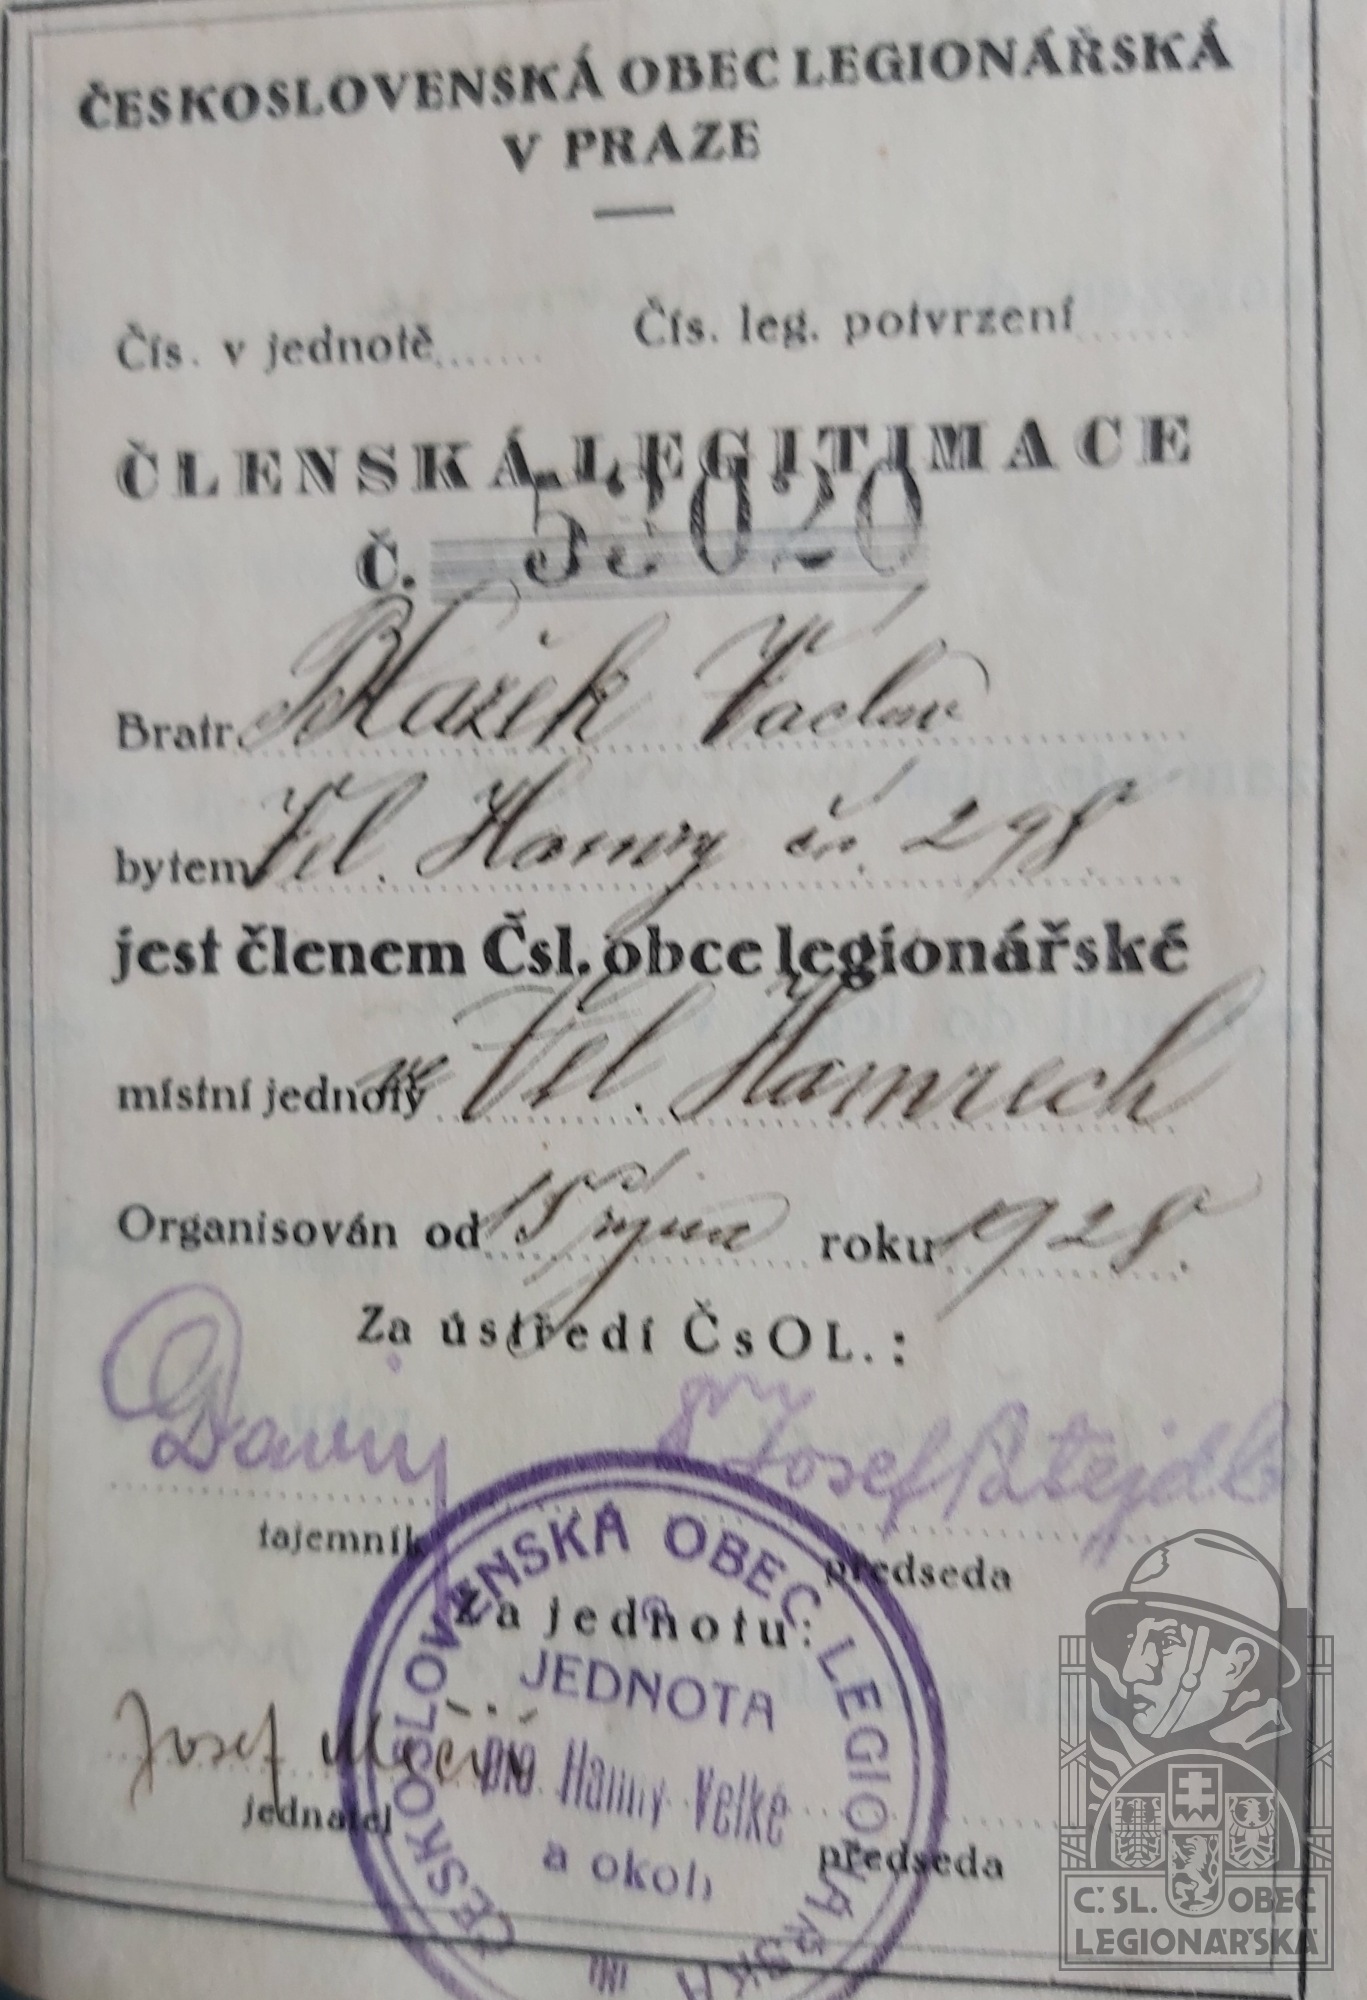 ČESKOSLOVENSKÁ OBEC LEGIONÁŘSKÁ
V PRAZE
Čís. v jednotě........ Čís. leg. potvrzení........
ČLENSKÁ LEGITIMACE
Č. 52020
Bratr Blažek Václav
bytem Vel. Hamry čp. 298.
jest členem Čsl. obce legionářské
místní jednoty ve Vel. Hamrech
Organisován od 15 října roku 1928.
Za ústředí ČsOL.:
Josef Patejdl
tajemník předseda
Za jednotu:
Josef
jednatel předseda
ČESKOSLOVENSKÁ OBEC LEGIONÁŘSKÁ
JEDNOTA
pro Hamry Velké
a okolí
Č.SL. OBEC
LEGIONÁŘSKÁ